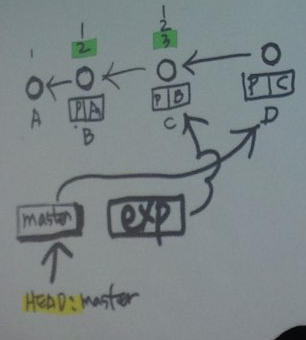 1
1
2
1
2
3
A
P A
B
P B
C
P C
D
master
exp
HEAD: master